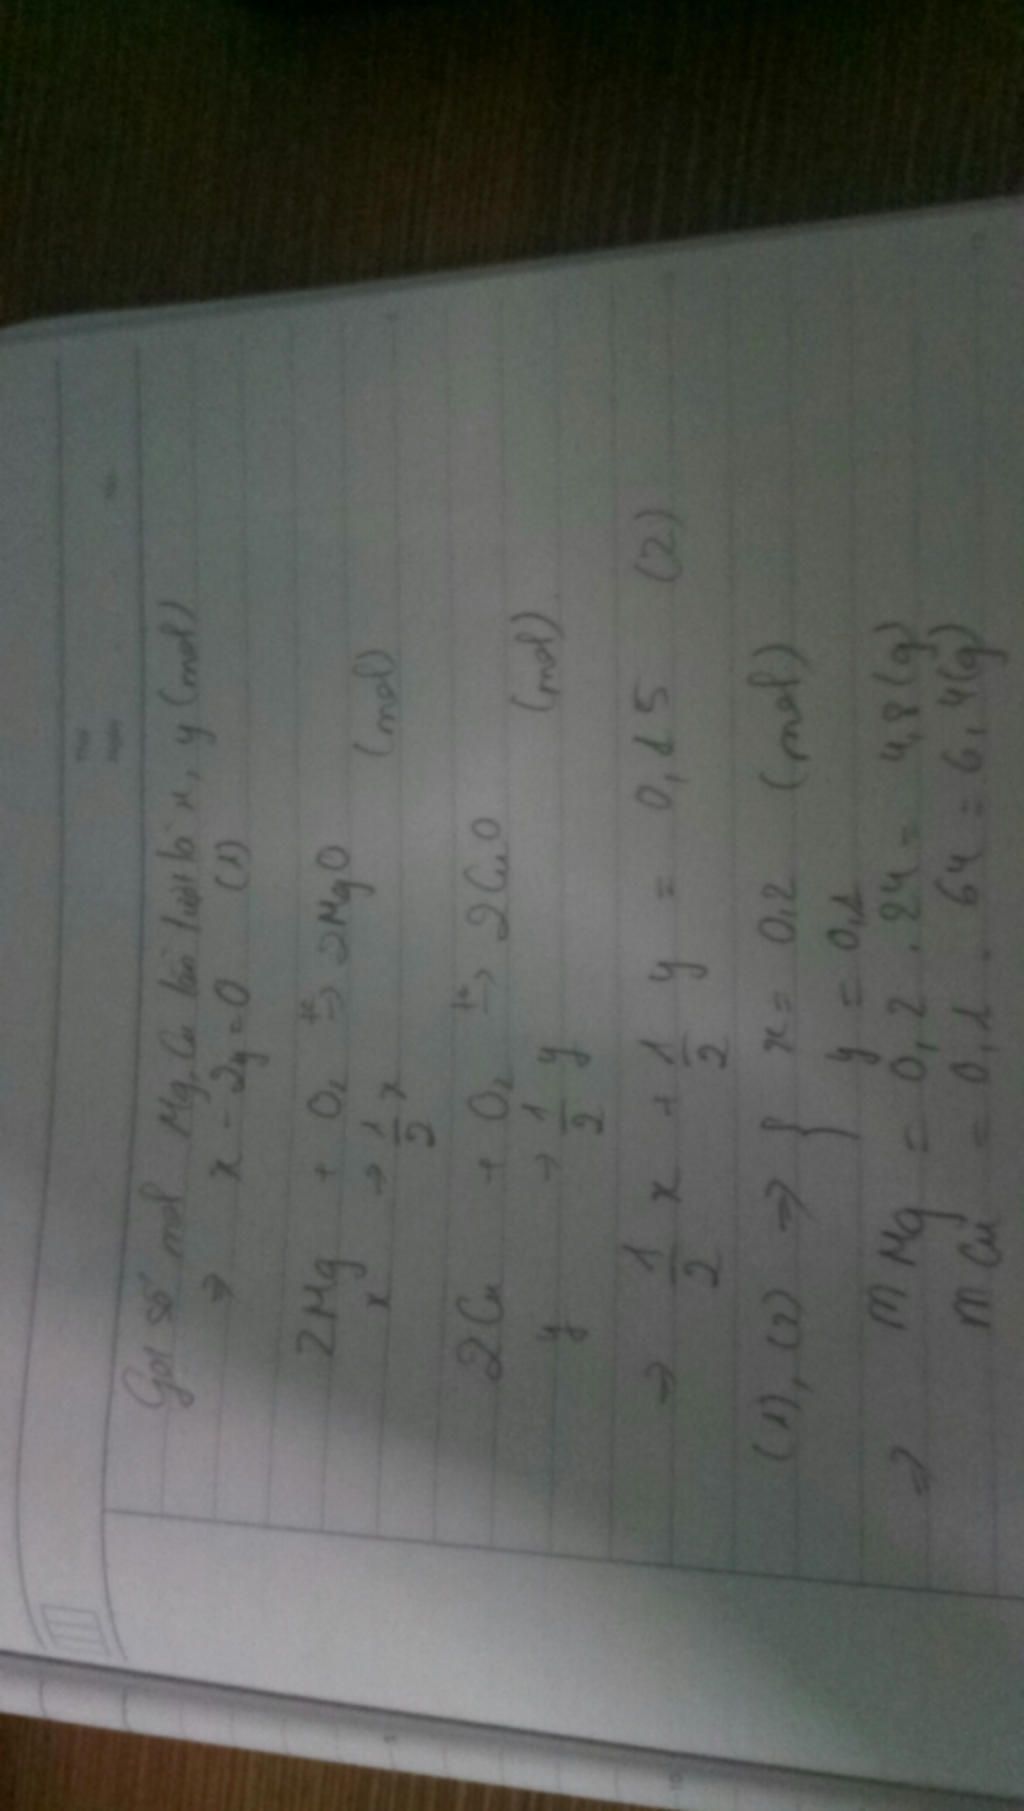 Gọi số mol Mg, Cu lần lượt là x, y (mol)
⇒ x - 2y = 0 (1)
2Mg + O₂ t°→ 2MgO
x → 1/2 x (mol)
2Cu + O₂ t°→ 2CuO
y → 1/2 y (mol)
⇒ 1/2 x + 1/2 y = 0,15 (2)
(1), (2) ⇒ { x = 0,2 (mol)
y = 0,1
⇒ m Mg = 0,2 . 24 = 4,8 (g)
m Cu = 0,1 . 64 = 6,4 (g)